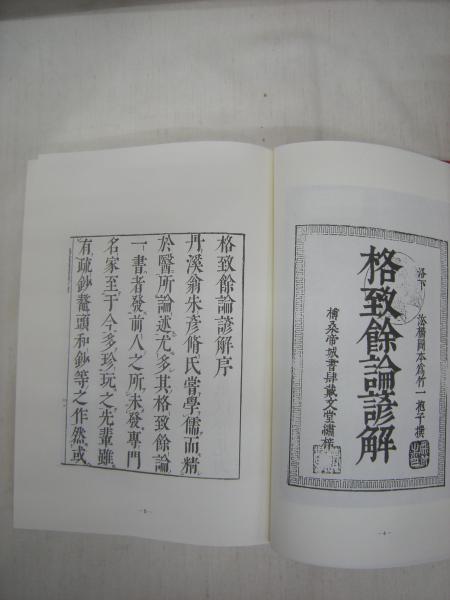 洛下 洛橋岡本爲竹一抱子撰
格致餘論諺解
榑桑帝城書肆藏文堂繡梓
- 4 -
格致餘論諺解序
丹溪翁朱彦脩氏嘗學儒而精
於醫所論述尤多其格致餘論
一書者發前人之所未發專門
名家至于今多珍玩之先輩雖
有疏鈔鼇頭和鈔等之作然或
- 5 -